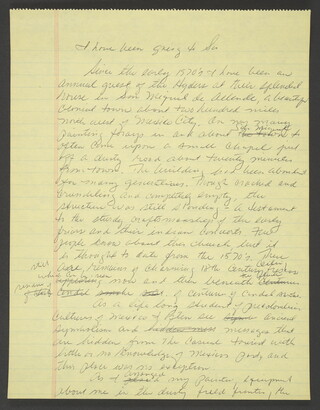 I have been going to San
Since the early 1970's I have been an
annual guest of the Hyders at their splendid
house in San Miguel de Allende, a beautiful
colonial town about two hundred miles
north west of Mexico City. On my many
San Miguel
painting forays in and about the town I
often come upon a small chapel just
off a dusty road about twenty minutes
from town. The building had been abandoned
for many generations. Though cracked and
crumbling and completely empty, the
structure was still standing, a testament
to the steady craftsmanship of the early
and their indian converts. Few
people know about this church but it
is thought to date from the 1570's. There
were remains of charming 18th century
now and then beneath
of centuries of candle smoke
As a life long student of
cultures of Mexico I often see ancient
symbolism and hidden messages that
are hidden from the casual tourist with
little or no knowledge of Mexico's gods, and
this place was no exception.
arranged
As I my painting equipment
about me in the dusty field fronting the